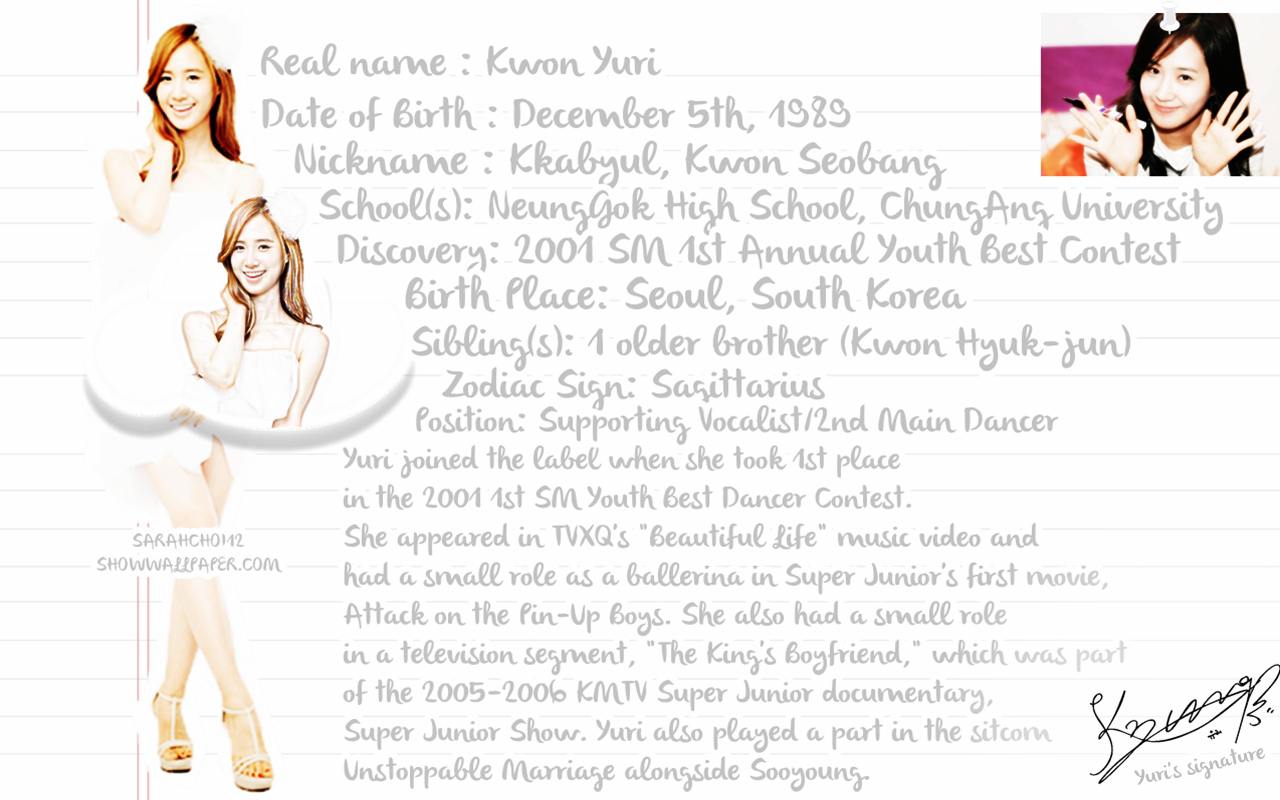 Real name : Kwon Yuri
Date of Birth : December 5th, 1989
Nickname : Kkabyul, Kwon Seobang
School(s): NeungGok High School, ChungAng University
Discovery: 2001 SM 1st Annual Youth Best Contest
Birth Place: Seoul, South Korea
Sibling(s): 1 older brother (Kwon Hyuk-jun)
Zodiac Sign: Sagittarius
Position: Supporting Vocalist/2nd Main Dancer
Yuri joined the label when she took 1st place
in the 2001 1st SM Youth Best Dancer Contest.
She appeared in TVXQ's "Beautiful Life" music video and
had a small role as a ballerina in Super Junior's first movie,
Attack on the Pin-Up Boys. She also had a small role
in a television segment, "The King's Boyfriend," which was part
of the 2005-2006 KMTV Super Junior documentary,
Super Junior Show. Yuri also played a part in the sitcom
Unstoppable Marriage alongside Sooyoung.
SARAHCHOI12
SHOWWALLPAPER.COM
Yuri's signature